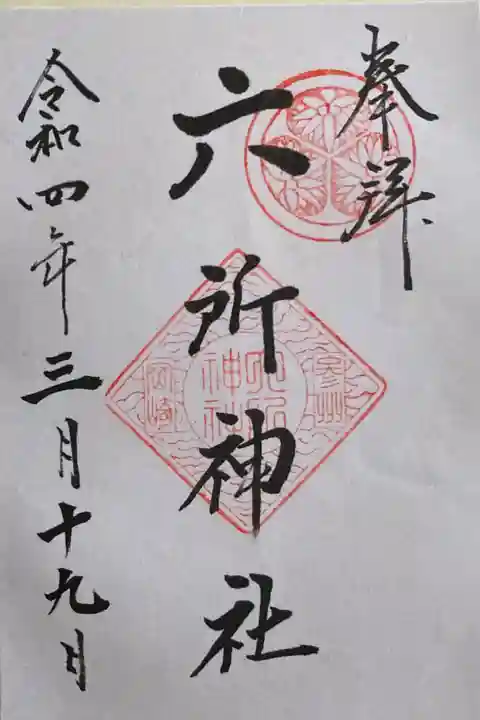 奉拝
六所神社
参州
六所神社
岡崎
令和四年三月十九日